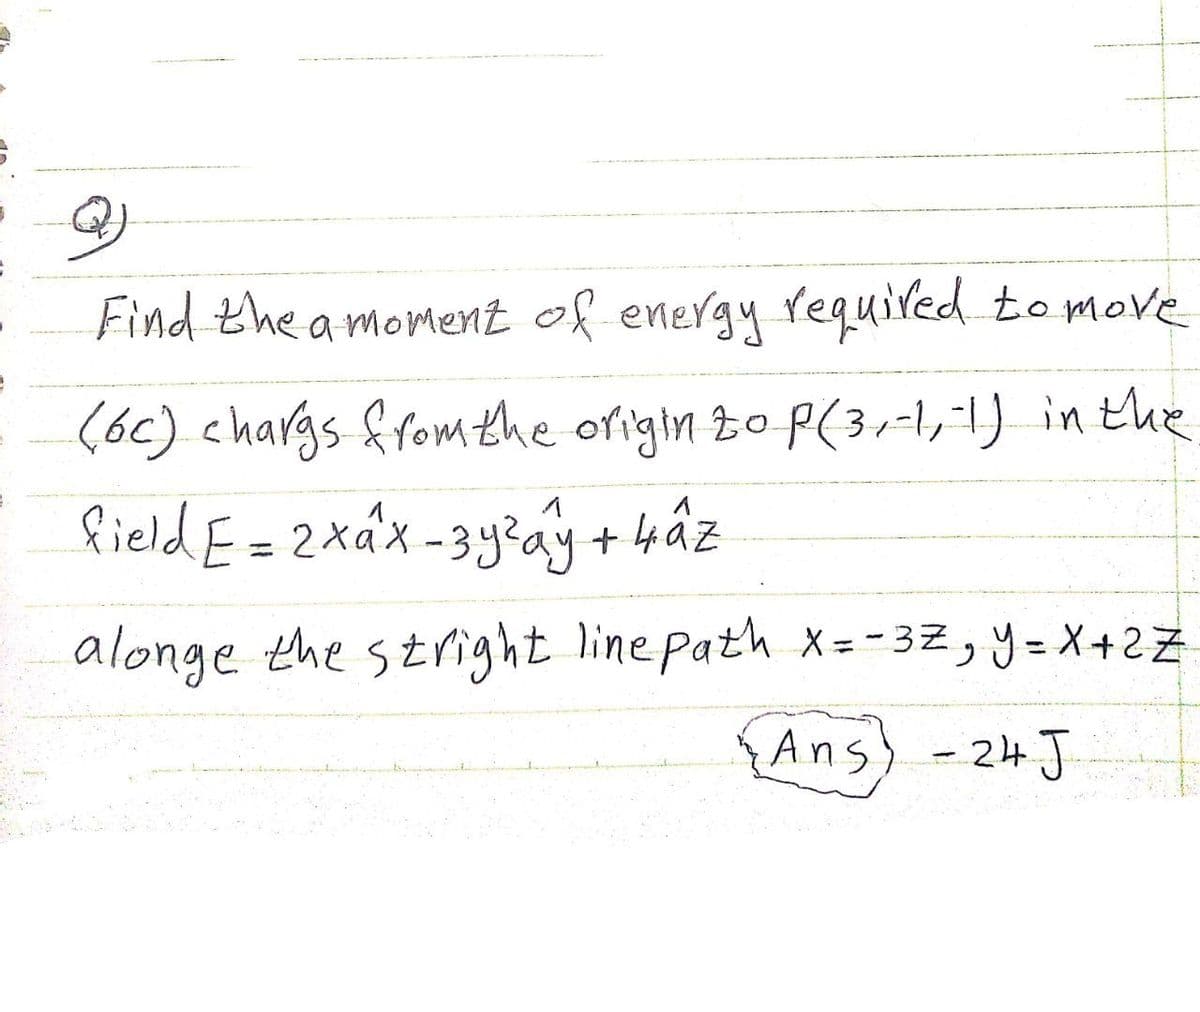 Q)
Find the amoment of energy required to move
(6c) chargs from the origin to P(3,-1,-1) in the
field E = 2xâx - 3y²ây + 4âz
alonge the stright line path x = -3z, y = x+2z
{Ans} - 24 J